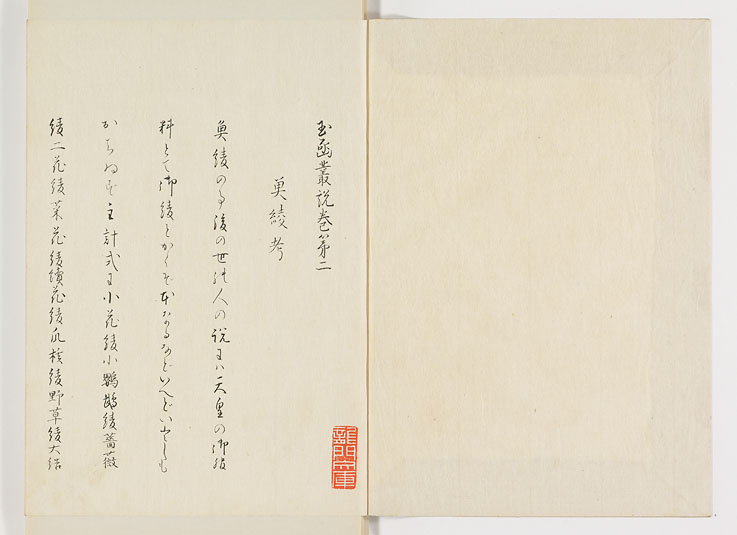 玉函叢説巻第二
奥綾考
奥綾の事後の世の人の説にハ天皇の御服
料とて御綾とかくそ本なるなどいへどいとしも
おらぬそ主計式に小花綾小鸚鵡綾薔薇
綾二花綾菜花綾續花綾爪構綾野草綾大花
龍門文庫